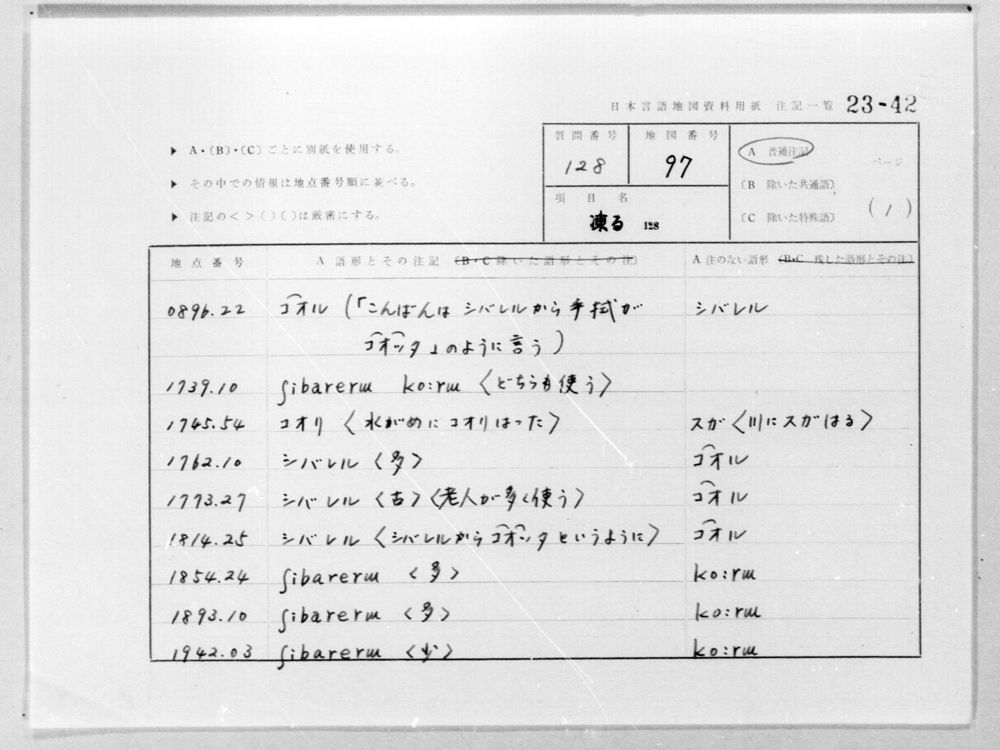 日本言語地図資料用紙 注記一覧 23-42
▶ A・〔B〕・〔C〕ごとに別紙を使用する。
▶ その中での情報は地点番号順に並べる。
▶ 注記の< >( )〔 〕は厳密にする。
質問番号 地図番号 A 普通注記
128 97 ページ
〔B 除いた共通語〕
項目名 (1)
凍る 128 〔C 除いた特殊語〕
地点番号 A 語形とその注記 〔B・C 除いた語形とその注〕 A 注のない語形 〔B・C 残した語形とその注〕
0896.22 コオル (「こんばんは シバレルから 手拭が シバレル
コオッタ」のように言う)
1739.10 ʃibarerɯ ko:rɯ 〈どちらも使う〉
1745.54 コオリ 〈水がめに コオリはった〉 スガ〈川にスガはる〉
1762.10 シバレル 〈多〉 コオル
1773.27 シバレル 〈古〉〈老人が多く使う〉 コオル
1814.25 シバレル 〈シバレルからコオッタというように〉 コオル
1854.24 ʃibarerɯ 〈多〉 ko:rɯ
1893.10 ʃibarerɯ 〈多〉 ko:rɯ
1942.03 ʃibarerɯ 〈少〉 ko:rɯ